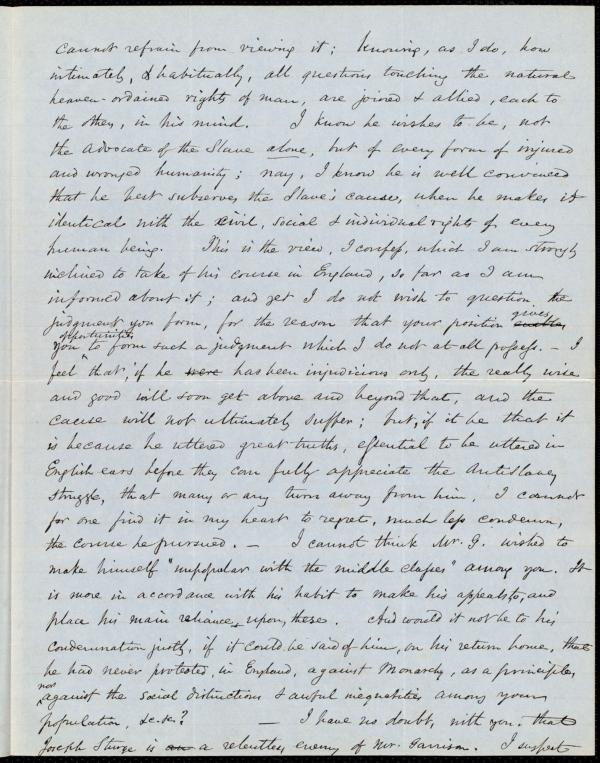 cannot refrain from viewing it; knowing, as I do, how
intimately, & habitually, all questions touching the natural
heaven-ordained rights of man, are joined & allied, each to
the other, in his mind. I know he wishes to be, not
the Advocate of the Slave alone, but of every form of injured
and wronged humanity; nay, I know he is well convinced
that he best subserves the Slave's cause, when he makes it
identical with the civil, social & individual rights of every
human being. This is the view, I confess, which I am strongly
inclined to take of his course in England, so far as I am
informed about it; and yet I do not wish to question the
judgment you form, for the reason that your position gives
you opportunities to form such a judgment which I do not at all possess. — I
feel that, if he were has been injudicious only, the really wise
and good will soon get above and beyond that, and the
cause will not ultimately suffer; but, if it be that it
is because he uttered great truths, essential to be uttered in
English ears before they can fully appreciate the Antislavery
struggle, that many or any turn away from him, I cannot
for one find it in my heart to regret, much less condemn,
the course he pursued. — I cannot think Mr. G. wished to
make himself "unpopular with the middle classes" among you. It
is more in accordance with his habit to make his appeals to, and
place his main reliance upon, these. And would it not be to his
condemnation justly, if it could be said of him, on his return home, that
he had never protested, in England, against Monarchy, as a principle,
nor against the social distinctions & awful inequalities among your
population, &c. &c.? — I have no doubt, with you, that
Joseph Sturge is an a relentless enemy of Mr. Garrison. I suspect